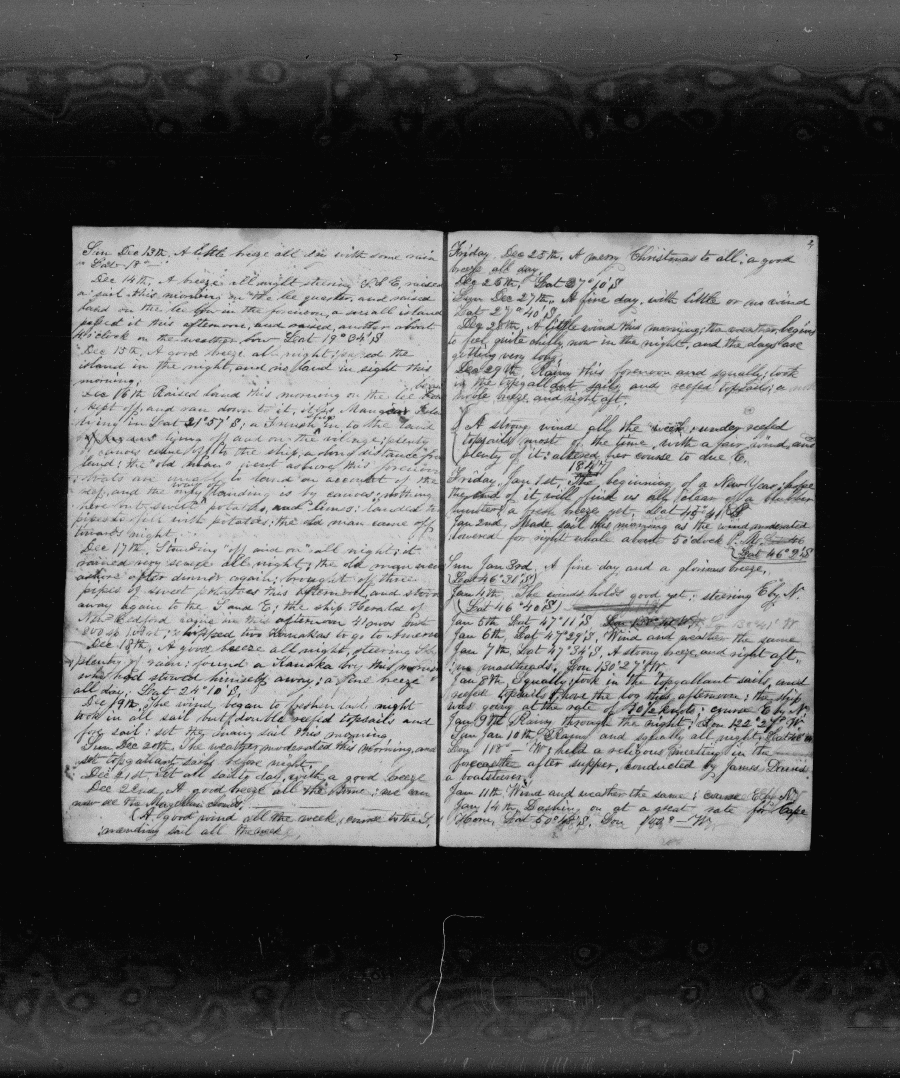 Sun Dec 13th. A little breze all day with some rain
Lat 18°
Dec 14th. A breeze all night steering S.S.E, raised
a sail this morning on the lee quarter, and raised
land on the lee bow in the forenoon, a small island
passed it this afternoon, and raised another about
o'clock on the weather bow Lat 19° 04' S
Dec 15th. A good breeze all night; the
island in the night, and no land in sight this
morning.
Dec 16th Raised land this morning on the lee
kept off, and ran down to it, it is
lying in Lat 21° 57' S; a French ship in to the land
lying off and on the village; plenty
of canoes came off to the ship, a short distance from
land; the "old man" went ashore this forenoon
boats are unable to land on account of the
reef, and the only way of landing is by canoes; nothing
here but sweet potatoes, and limes: landed
with potatoes; the old man came off
towards night.
Dec 17th, Standing "off and on" all night; it
rained very much all night; the old man went
ashore after dinner again; brought off three
pipes of sweet potatoes this afternoon, and stood
away again to the S and E; the ship Herald of
New Bedford came in this afternoon 41 mos out
shipped two Kanakas to go to America
Dec 18th, A good breeze all night, steering
plenty of rain: found a Kanaka boy this morning
who had stowed himself away; a fine breeze
all day; Lat 24° 10' S.
Dec 19th. The wind began to freshen last night
took in all sail but double reef'd topsails and
fore sail: set the main sail this morning
Sun Dec 20th. The weather moderated this morning, and
set topgallant sails before night.
Dec 21st. Set all sail to day, with a good breeze
Dec 22nd. A good breeze all the time; we can
now see the Magellan clouds.
(A good wind all the week, course to the S,
manding sail all the week
4
Friday, Dec 25th. A merry Christmas to all; a good
breeze all day.
Dec 26th, Lat 27° 10' S
Sun Dec 27th. A fine day, with little or no wind
Lat 27° 40' S
Dec 28th, A little wind this morning; the weather begins
to feel quite chilly now in the night, and the days are
getting very long.
Dec 29th. Rainy this forenoon and squally; took
in the topgallant sails and reefed topsails; a
breeze, and right aft.
A strong wind all the week; under reefed
topsails most of the time, with a fair wind and
plenty of it: altered her course to due E.
1847
Friday, Jan 1st, The beginning of a New Year; hope
the end of it will find us all clear of a blubber
hunter; a fresh breeze yet. Lat 45° 41' S
Jan 2nd, Made sail this morning as the wind moderated
lowered for right whale about 5 o'clock P.M.
Lat 46° 9' S
Sun Jan 3rd. A fine day and a glorious breeze.
(Lat 46° 31' S)
Jan 4th. The winds holds good yet: steering E by N
(Lat 46° 40' S)
Jan 5th Lat 47° 11' S
Jan 6th, Lat 47° 29' S, Wind and weather the same
Jan 7th, Lat 47° 34' S, A strong breeze and right aft.
mastheads. Lon 130° 27' W
Jan 8th. Squally; took in the topgallant sails, and
reefed topsails; hove the log this afternoon: the ship
was going at the rate of 10 1/2 knots; course E by N
Jan 9th Rainy through the night; Lon 122° 24' W
Sun Jan 10th Rainy and squally all night,
Lon 118° — W; held a religious meeting in the
forecastle after supper, conducted by James Dennis
a boatsteerer.
Jan 11th Wind and weather the same; course E by N
Jan 14th, Dashing on at a great rate for Cape
Horn,